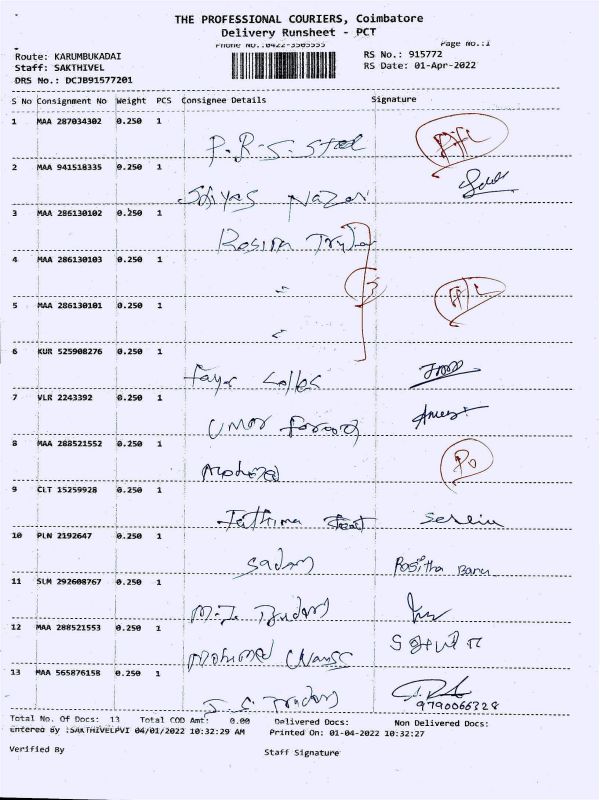 THE PROFESSIONAL COURIERS, Coimbatore
Delivery Runsheet - PCT
Phone No.:0422-3503555
Page No.:1
Route: KARUMBUKADAI
RS No.: 915772
Staff: SAKTHIVEL
RS Date: 01-Apr-2022
DRS No.: DCJB91577201
S No Consignment No Weight PCS Consignee Details Signature
1 MAA 287034302 0.250 1
P.R.S. Steel
2 MAA 941518335 0.250 1
Shiyas Nazar
3 MAA 286130102 0.250 1
4 MAA 286130103 0.250 1
3
5 MAA 286130101 0.250 1
6 KUR 525908276 0.250 1
7 VLR 2243392 0.250 1
Umar Farooq
8 MAA 288521552 0.250 1
Po
9 CLT 15259928 0.250 1
Fathima
10 PLN 2192647 0.250 1
Sadam Rasitha Banu
11 SLM 292608767 0.250 1
12 MAA 288521553 0.250 1
Mohamed
13 MAA 565876158 0.250 1
9790066328
Total No. Of Docs: 13 Total COD Amt: 0.00 Delivered Docs: Non Delivered Docs:
Entered By :SAKTHIVELPVI 04/01/2022 10:32:29 AM Printed On: 01-04-2022 10:32:27
Verified By Staff Signature